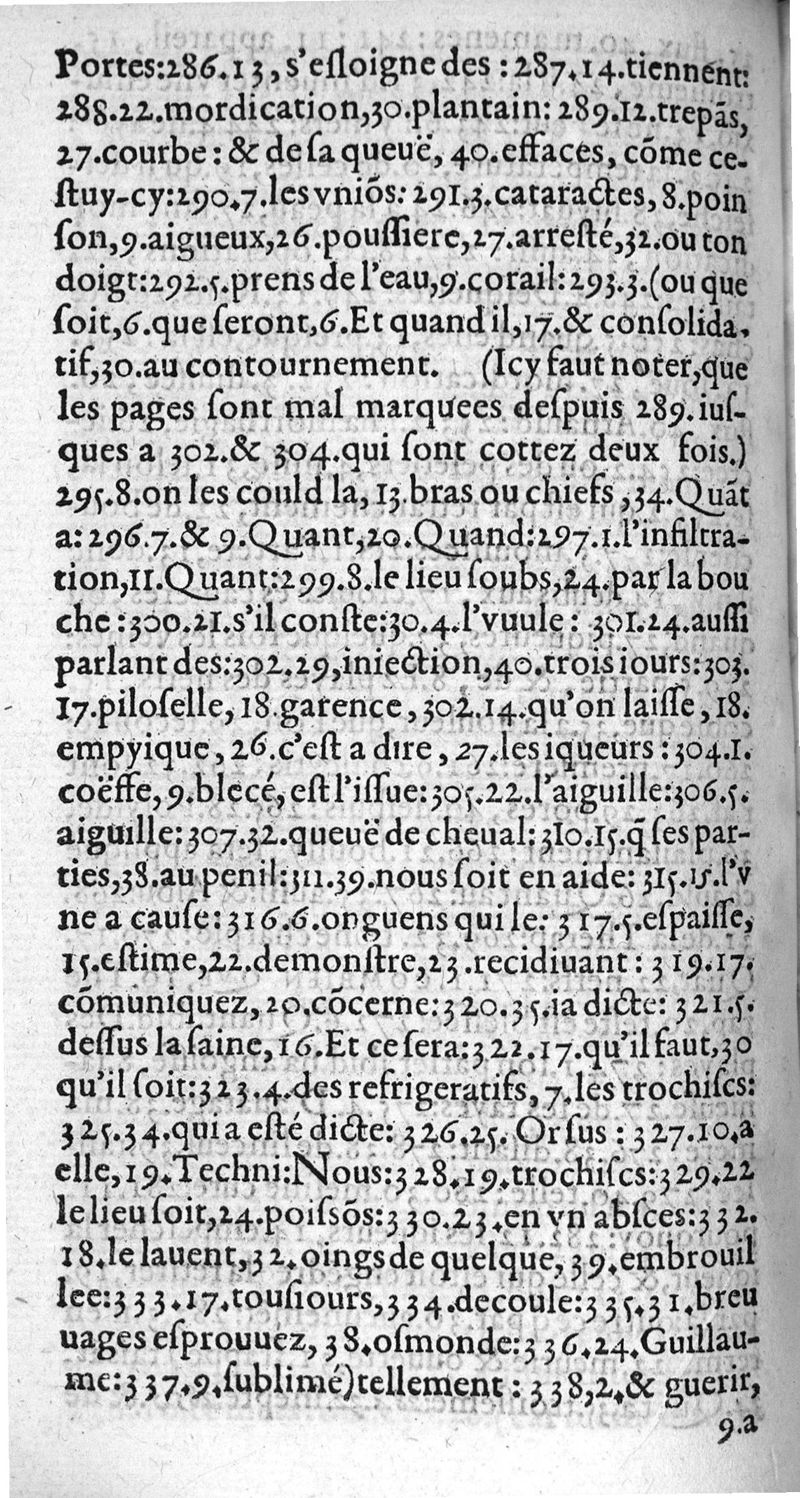 Portes:286.13, s'eſloigne des : 287.14.tiennent:
288.22.mordication,30.plantain: 289.12.trepãs,
27.courbe : & de ſa queuë, 40.effaces, cõme ce-
ſtuy-cy:290.7.les vniõs: 291.3.cataractes, 8.poin
ſon,9.aigueux,26.pouſſiere,27.arreſté,32.ou ton
doigt:292.5.prens de l'eau,9.corail: 293.3.(ou que
ſoit,6.que ſeront,6.Et quand il,17.& conſolida.
tif,30.au contournement. (Icy faut noter,que
les pages ſont mal marquees deſpuis 289.iuſ-
ques a 302.& 304.qui ſont cottez deux fois.)
295.8.on les could la, 13.bras ou chiefs ,34.Quãt
a: 296.7.& 9.Quant,20.Quand:297.1.l'infiltra-
tion,11.Quant:299.8.le lieu ſoubs,24.par la bou
che :300.21.s'il conſte:30.4.l'vuule : 301.24.auſſi
parlant des:302.29,iniection,40.trois iours:303.
17.piloſelle, 18.garence ,302.14.qu'on laiſſe , 18.
empyique , 26.c'eſt a dire , 27.les iqueurs : 304.1.
coëffe, 9.blecé, eſt l'iſſue: 305.22.l'aiguille:306.5.
aiguille: 307.32.queuë de cheual: 310.15.q̃ ſes par-
ties,38.au penil:311.39.nous ſoit en aide: 315.15.l'v
ne a cauſe: 316.6.onguens qui le: 317.5.eſpaiſſe,
15.eſtime,22.demonſtre,23.recidiuant : 319.17.
cõmuniquez, 20.cõcerne:320.35.ia dicte: 321.5.
deſſus la ſaine, 16.Et ce ſera:322.17.qu'il faut,30
qu'il ſoit:323.4.des refrigeratifs, 7.les trochiſcs:
325.34.qui a eſté dicte: 326.25. Or ſus : 327.10.a
elle,19.Techni:Nous:328.19.trochiſcs:329.22
le lieu ſoit,24.poiſsõs:330.23.en vn abſces:332.
18.le lauent,32.oings de quelque, 39.embrouil
lee:333.17.touſiours,334.decoule:335.31.breu
uages eſprouuez, 38.oſmonde:336.24.Guillau-
me:337.9.ſublimé)tellement : 338,2.& guerir,
9.a